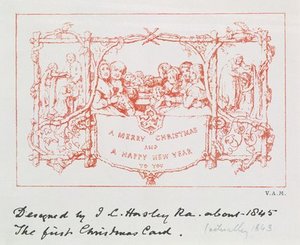 A MERRY CHRISTMAS
AND
A HAPPY NEW YEAR
TO YOU
V. A. M.
Designed by J. C. Horsley Ra. about 1845
The first Christmas Card.
actually 1843